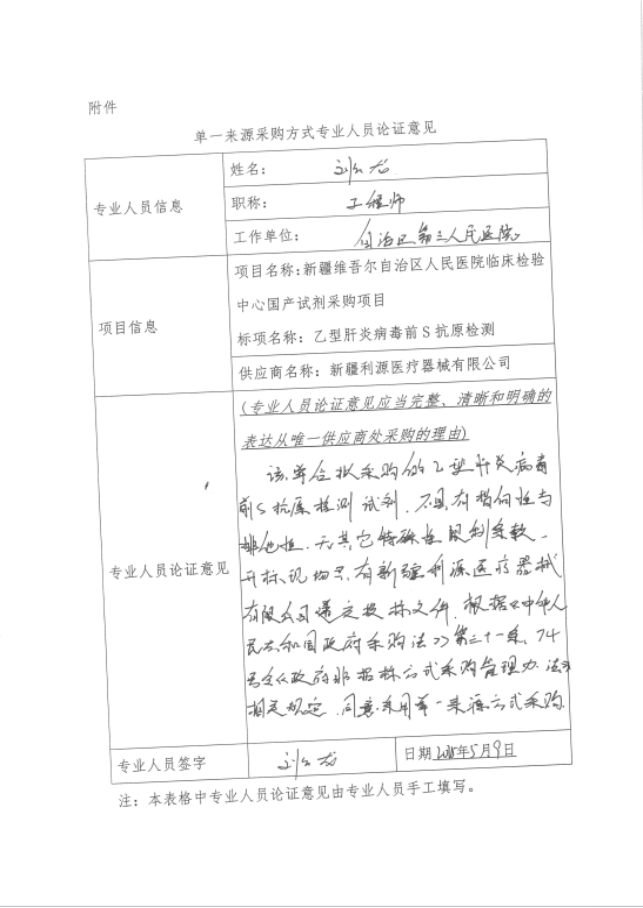 附件
单一来源采购方式专业人员论证意见
专业人员信息
姓名：
职称： 工程师
工作单位： 自治区第三人民医院
项目信息
项目名称：新疆维吾尔自治区人民医院临床检验
中心国产试剂采购项目
标项名称：乙型肝炎病毒前S抗原检测
供应商名称：新疆利源医疗器械有限公司
专业人员论证意见
(专业人员论证意见应当完整、清晰和明确的
表达从唯一供应商处采购的理由)
该单位拟采购的乙型肝炎病毒
前S抗原检测试剂，不具有指向性与
排他性，无其它特殊性限制条款，
开标现场只有新疆利源医疗器械
有限公司递交投标文件，根据《中华人
民共和国政府采购法》第三十一条，74
号令《政府非招标方式采购管理办法》
相关规定，同意采用单一来源方式采购
专业人员签字
日期 年5月9日
注：本表格中专业人员论证意见由专业人员手工填写。